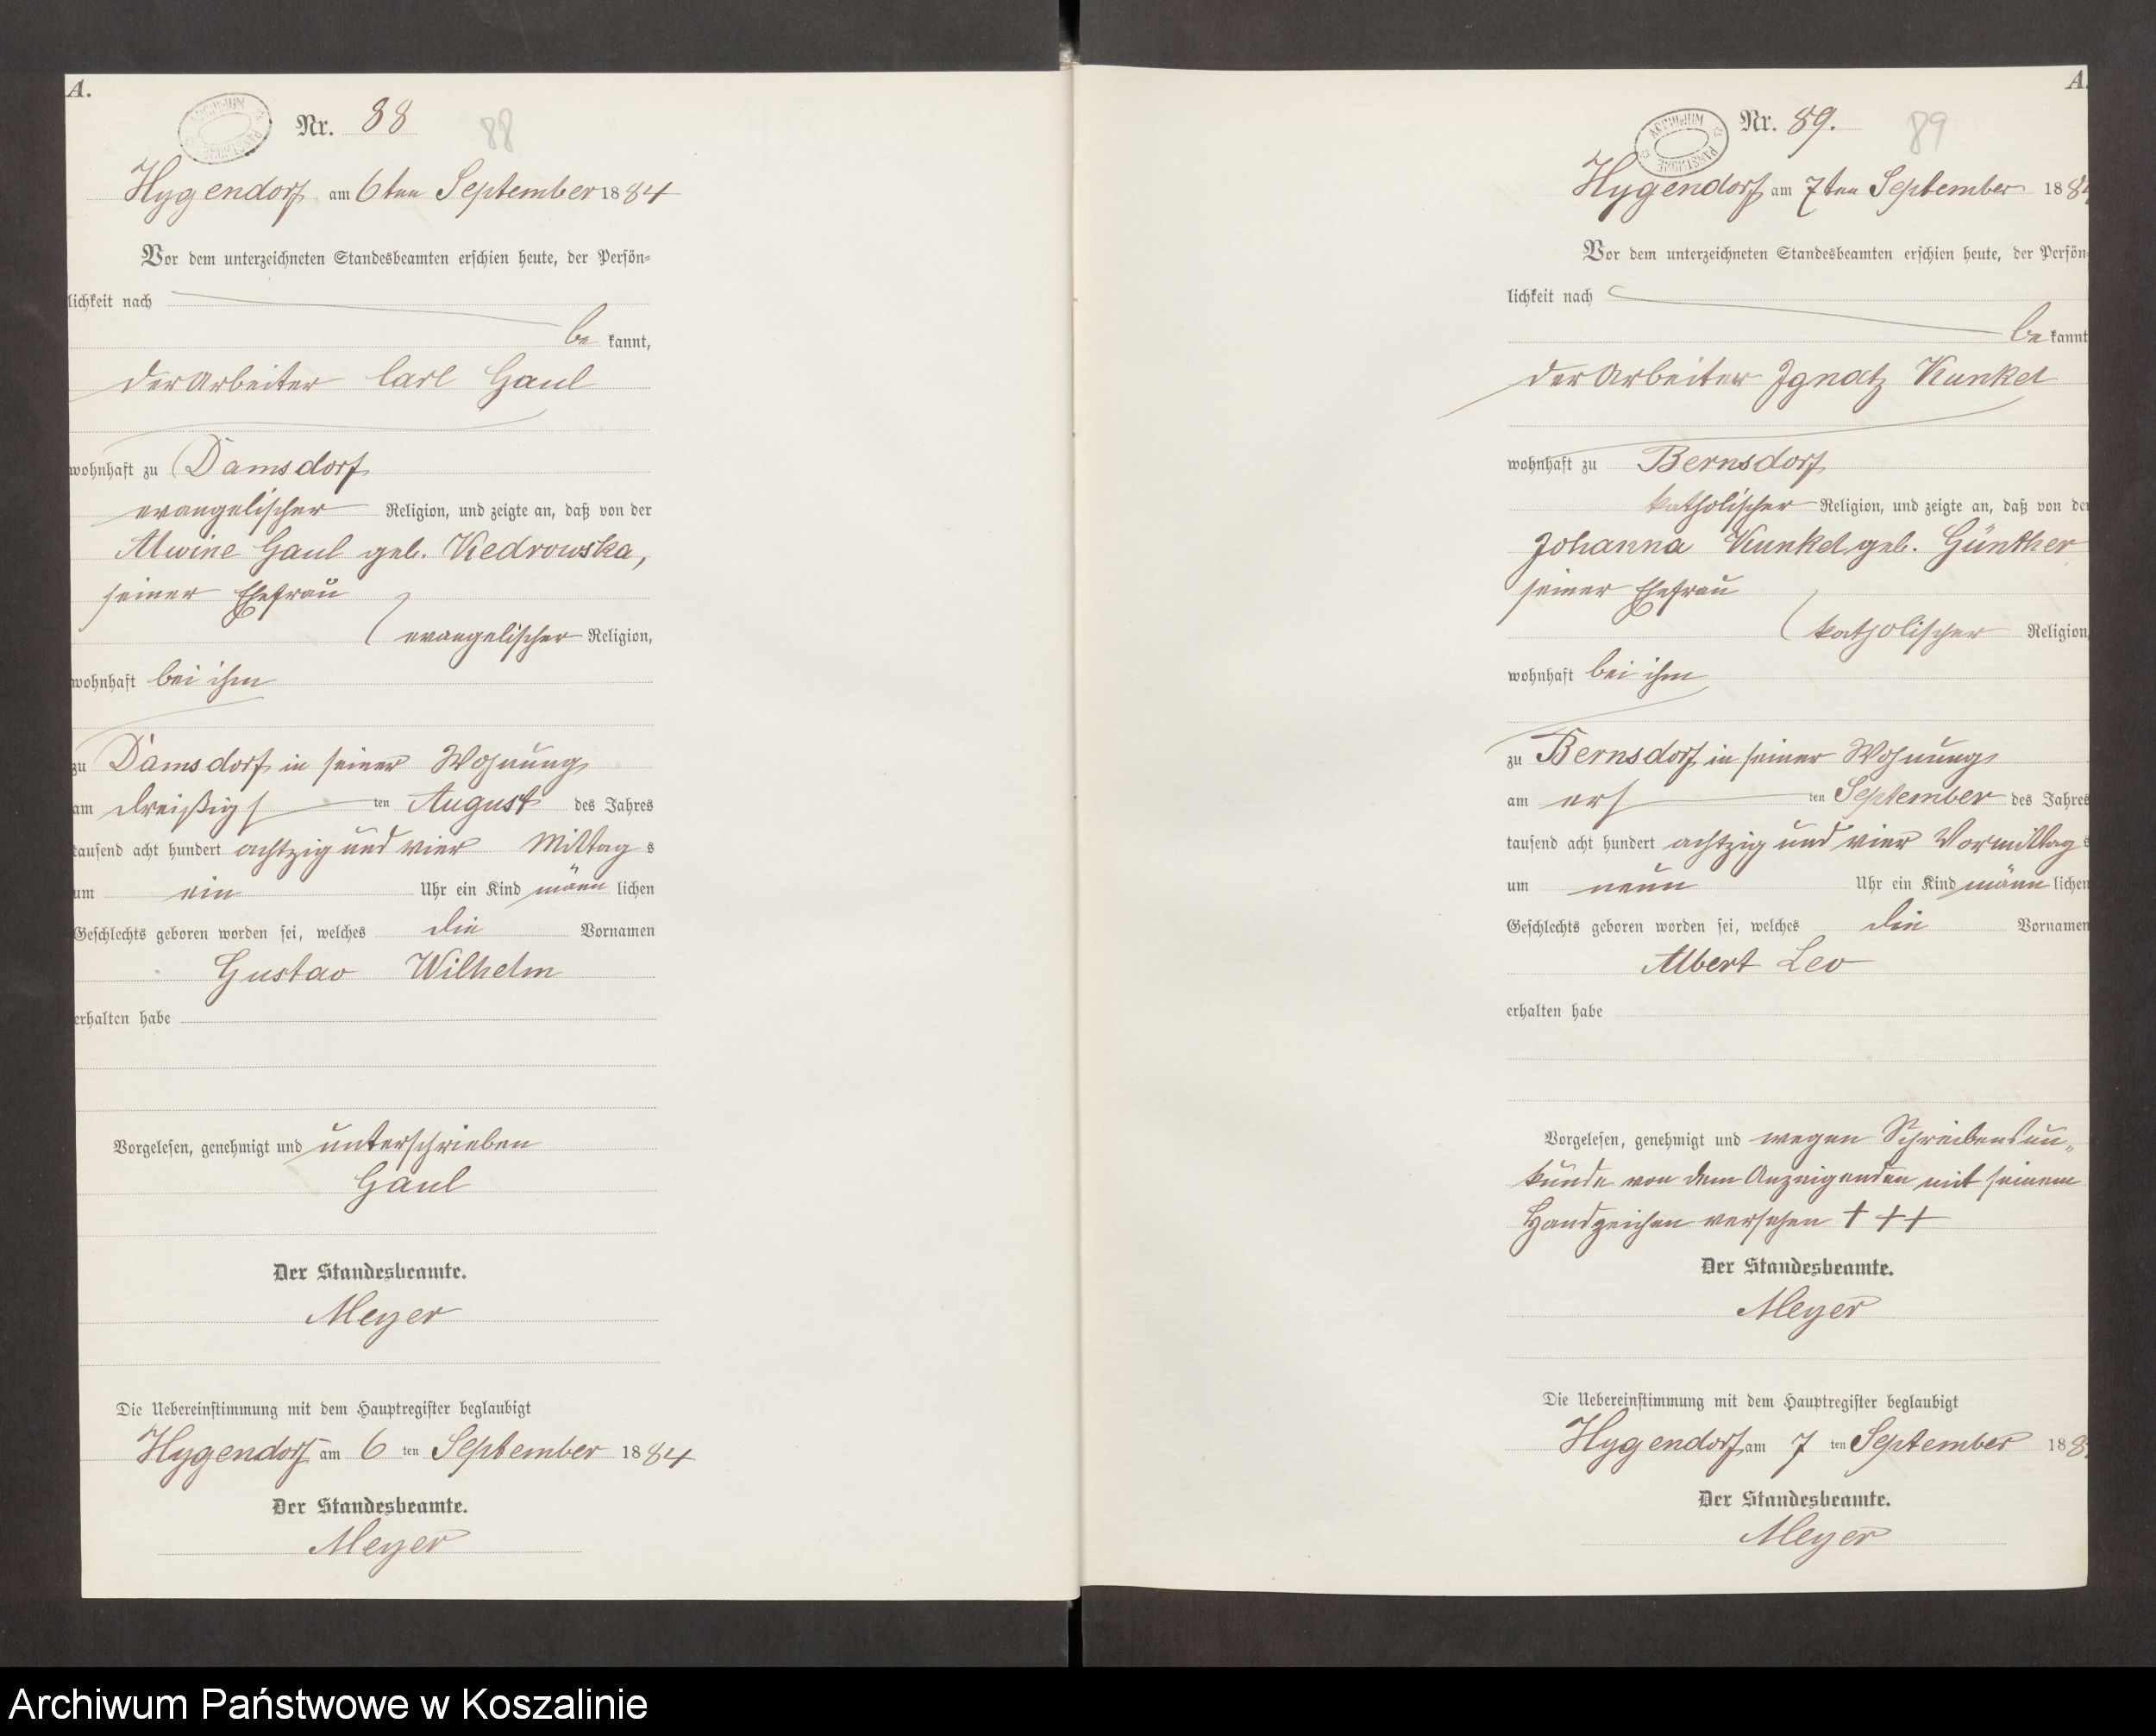 A.
Nr. 88
88
Hygendorf am 6ten September 1884
Vor dem unterzeichneten Standesbeamten erschien heute, der Persön-
lichkeit nach
bekannt,
der Arbeiter Carl Gaul
wohnhaft zu Damsdorf
evangelischer Religion, und zeigte an, daß von der
Alwine Gaul geb. Kedrowska,
seiner Ehefrau
evangelischer Religion,
wohnhaft bei ihm
zu Damsdorf in seiner Wohnung
am dreißigs ten August des Jahres
tausend acht hundert achtzig und vier Mittags
um ein Uhr ein Kind männlichen
Geschlechts geboren worden sei, welches die Vornamen
Gustav Wilhelm
erhalten habe
Vorgelesen, genehmigt und unterschrieben
Gaul
Der Standesbeamte.
Meyer
Die Uebereinstimmung mit dem Hauptregister beglaubigt
Hygendorf am 6ten September 1884
Der Standesbeamte.
Meyer
A.
Nr. 89.
89
ARCHIWUM PAŃSTWOWE
Hygendorf am 7ten September 1884
Vor dem unterzeichneten Standesbeamten erschien heute, der Persön-
lichkeit nach
bekannt
der Arbeiter Ignatz Kunkel
wohnhaft zu Bernsdorf
katholischer Religion, und zeigte an, daß von der
Johanna Kunkel geb. Günther
seiner Ehefrau
katholischer Religion,
wohnhaft bei ihm
zu Bernsdorf in seiner Wohnung
am ers ten September des Jahres
tausend acht hundert achtzig und vier Vormittags
um neun Uhr ein Kind männlichen
Geschlechts geboren worden sei, welches die Vornamen
Albert Leo
erhalten habe
Vorgelesen, genehmigt und wegen Schreibensun„
kunde von dem Anzeigenden mit seinem
Handzeichen versehen + + +
Der Standesbeamte.
Meyer
Die Uebereinstimmung mit dem Hauptregister beglaubigt
Hygendorf am 7ten September 188
Der Standesbeamte.
Meyer
Archiwum Państwowe w Koszalinie